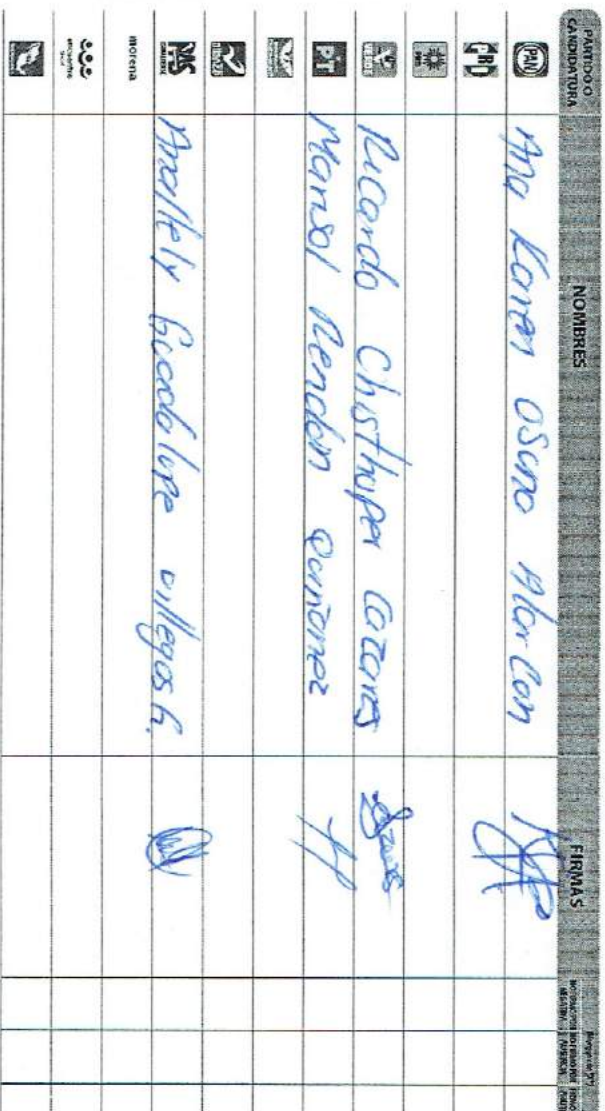 PARTIDO O CANDIDATURA NOMBRES FIRMAS
PAN Ana Karen Osuna Alarcon
PRD
VERDE Ricardo Chisthoper Cazares
PT Marisol Rendon Quiñonez
alianza
PAS Anallely Guadalupe villegas h.
morena
encuentro social